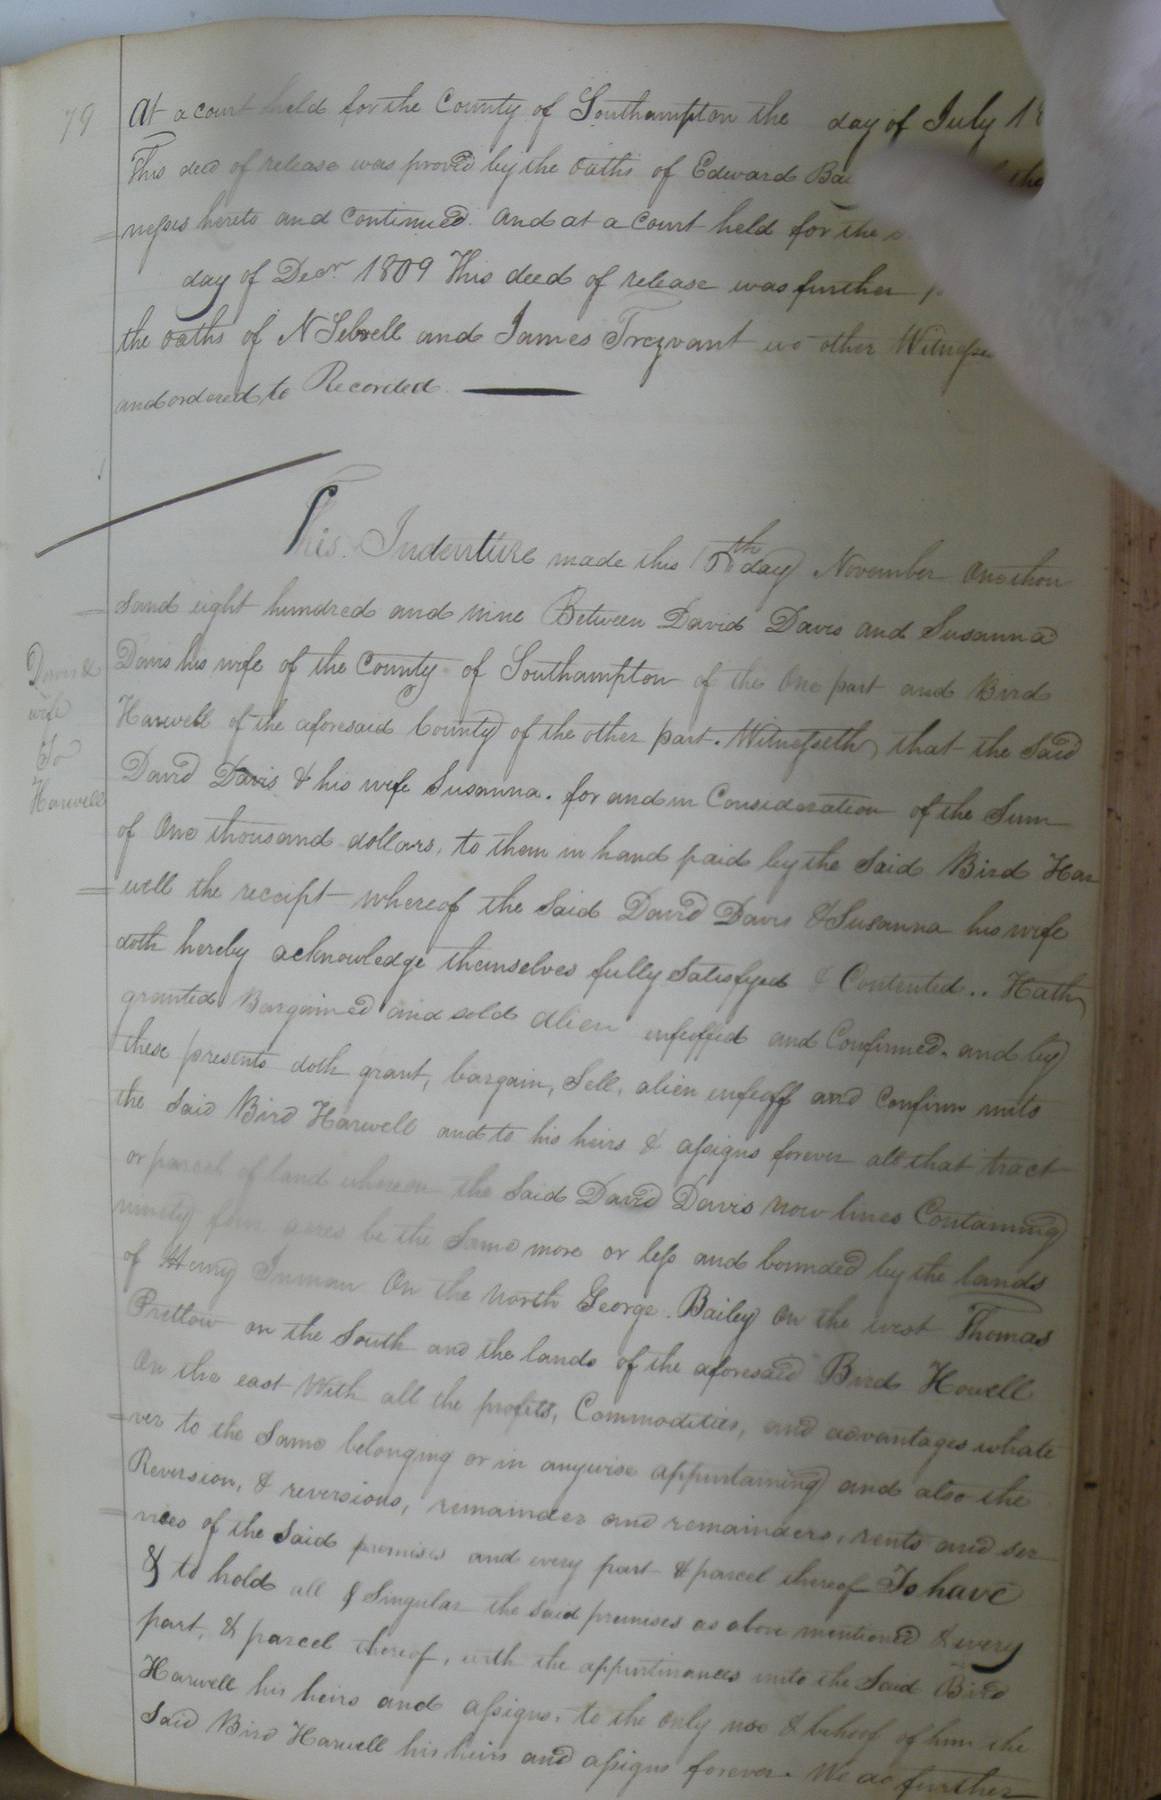 79
At a court held for the County of Southampton the day of July 1
This deed of release was proved by the oaths of Edward Bai the
nesses hereto and Continued. And at a Court held for the
day of Decr 1809 This deed of release was further
the oaths of N Sebrell and James Trezvant other Witnesse
and ordered to Recorded
This Indenture made this day November One thou
sand eight hundred and nine Between David Davis and Susanna
Davis his wife of the County of Southampton of the One part and Bird
Harwell of the aforesaid County of the other part. Witnesseth, that the Said
David Davis & his wife Susanna. for and in Consideration of the Sum
of One thousand dollars, to them in hand paid by the Said Bird Har
well the receipt whereof the Said David Davis & Susanna his wife
doth hereby acknowledge themselves fully Satisfyed & Contented.. Hath
granted Bargained and sold alien infeoffed and Confirmed. and by
these presents doth grant, bargain, Sell, alien infeoff and Confirm unto
the Said Bird Harwell and to his heirs & assigns forever all that tract
or parcel of land whereon the Said David Davis now lives Containing
ninety four acres be the Same more or less and bounded by the lands
of Henry Inman On the North George Bailey On the west Thomas
Pretlow on the South and the lands of the aforesaid Bird Howell
On the east With all the profits, Commodities, and advantages whate
ver to the Same belonging or in anywise appurtaining and also the
Reversion, & reversions, remainder and remainders, rents and ser
vices of the Said premises and every part & parcel thereof To have
& to hold all & Singular the said premises as above mentioned & every
part, & parcel thereof, with the appurtinances unto the Said Bird
Harwell his heirs and assigns, to the only use & behoof of him the
Said Bird Harwell his heirs and assigns forever. We do further
Davis &
wife
To
Harwell